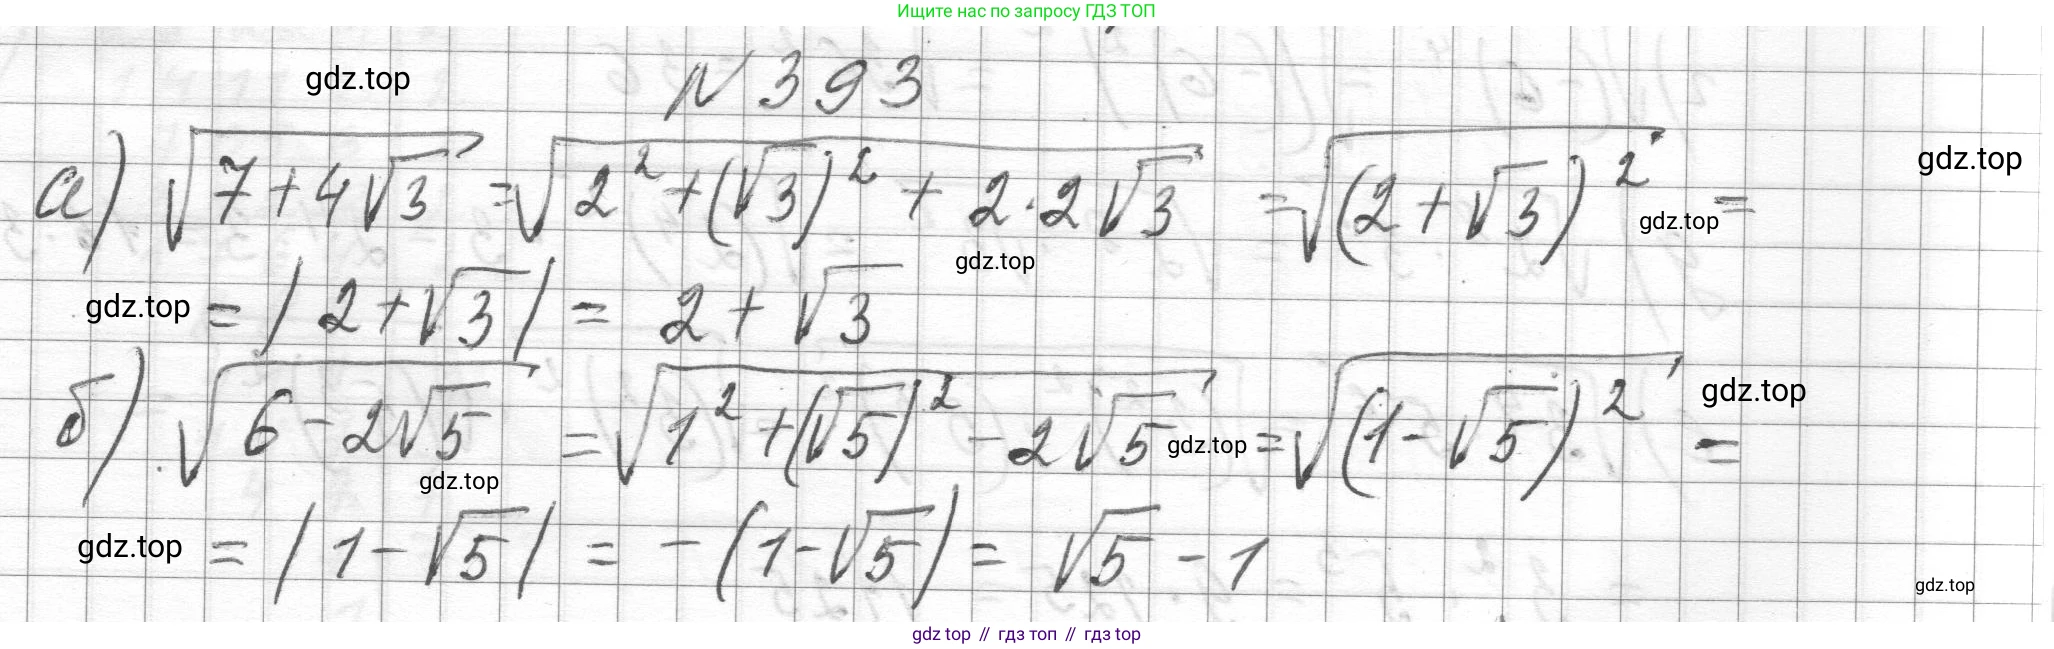 Ищите нас по запросу ГДЗ ТОП
gdz.top
N 393
а) √(7+4√3) = √(2² + (√3)² + 2·2√3) = √((2+√3)²) =
gdz.top
gdz.top
gdz.top
gdz.top = |2+√3| = 2+√3
б) √(6-2√5) = √(1² + (√5)² - 2√5) = √((1-√5)²) =
gdz.top
gdz.top
gdz.top
gdz.top = |1-√5| = -(1-√5) = √5 - 1
gdz.top
gdz top // гдз топ // гдз top